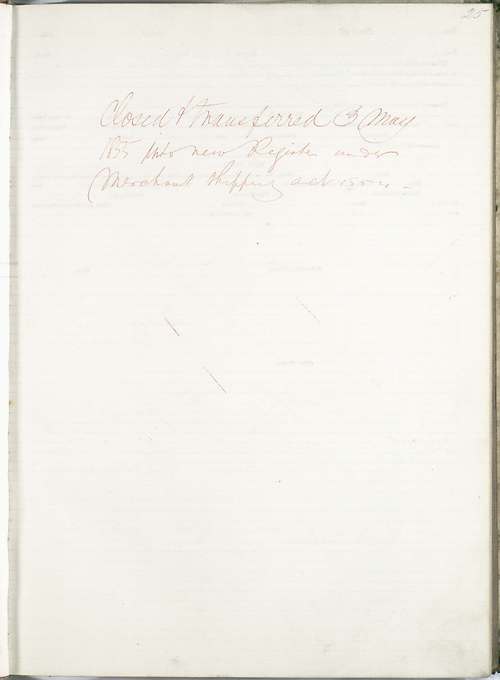 25
Closed & transferred 3 May
1855 into new Register under
Merchant Shipping Act 1854.